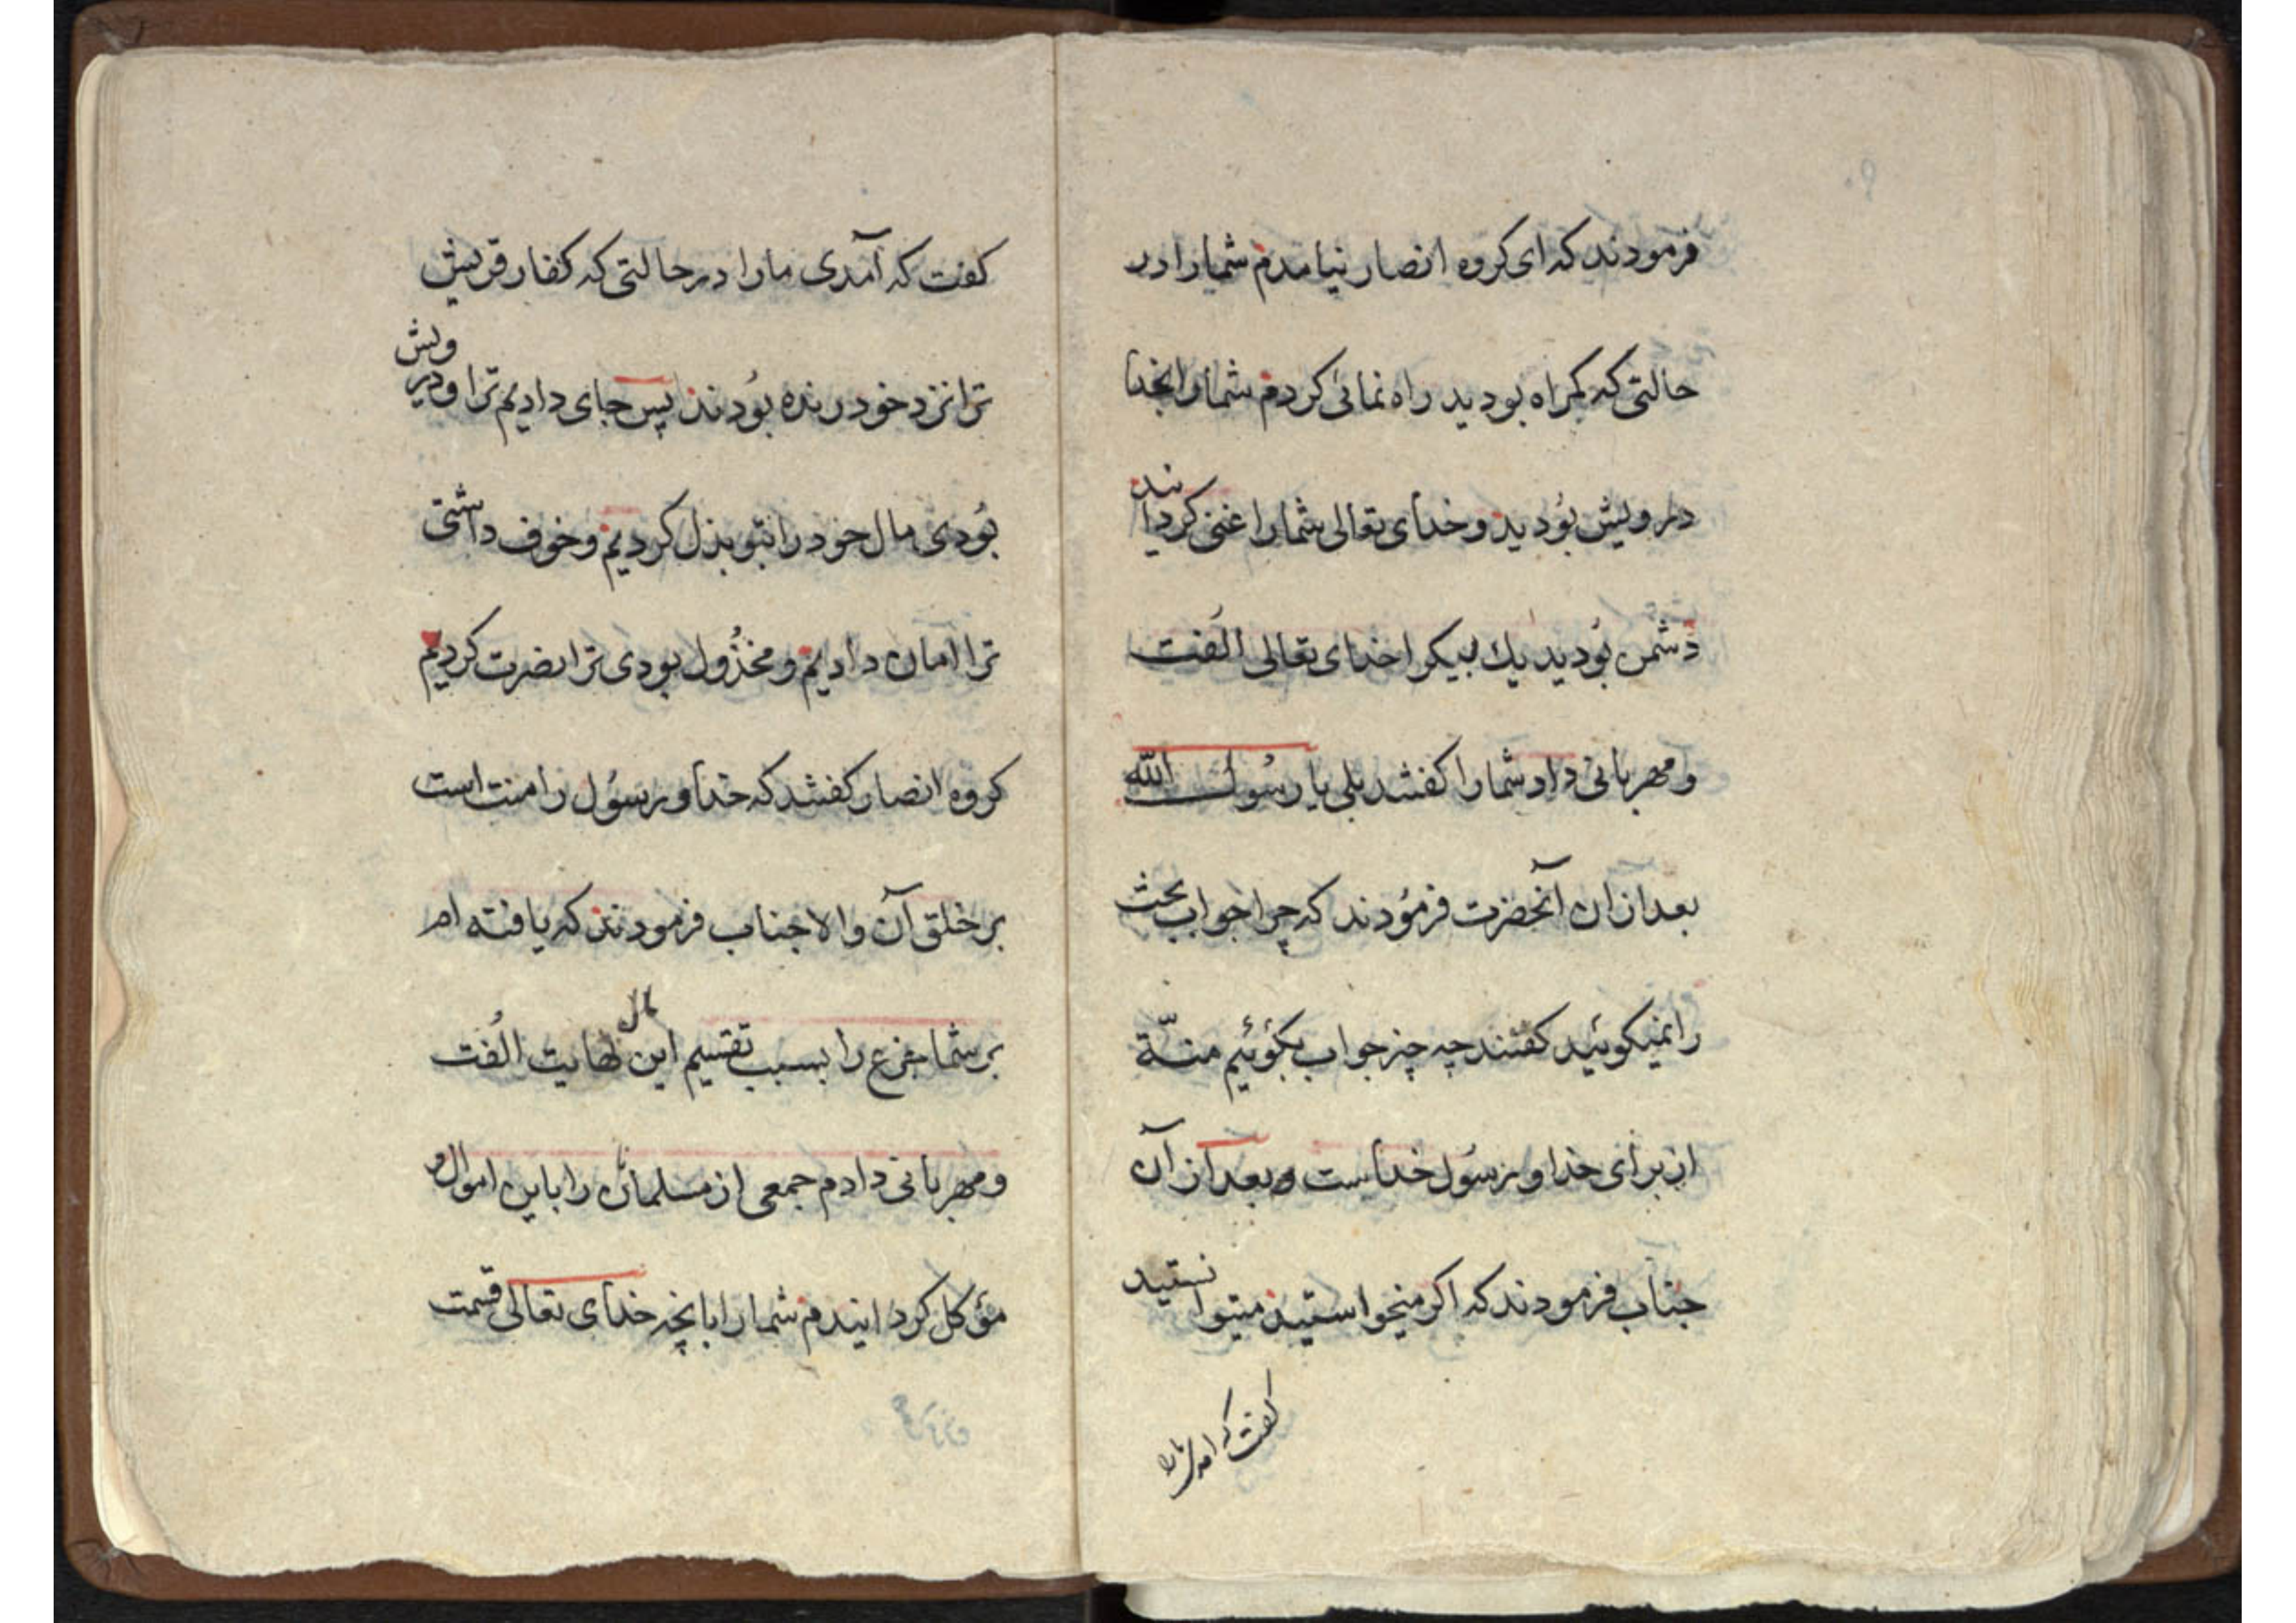 فرمودند که ای کروه انصار نیامدم شمارا در
حالتی که کمراه بودید راه نمائی کردم شمارا بخدا
درویش بودید و خدای تعالی شمارا غنی کردانید
دشمن بودید یك بیکر اخدای تعالی الُفت
و مهربانی داد شمارا کفتند بلی یا رسُول الله
بعد از ان آنحضرت فرمُودند که چرا جواب بحث
را نمیکوئید کفتند چه چیز جواب بکوئیم منّة
از برای خدا و رسُول خداست و بعد از آن
جناب فرمودند که اکر میخواستید میتوانستید
کفت که امدی مارا
کفت که آمدی مارا در حالتی که کفار قریش
ترا نزد خود رنده بوُدند پس جای دادیم ترا و درویش
بوُدی مال خود را بتو بذل کردیم و خوف داشتی
ترا امان دادیم و مخذُول بودی ترا نصرت کردیم
کروه انصار کفتند که خدا و رسُول را منت است
بر خلق آن والا جناب فرمودند که یافته ام
بر شما جزع را بسبب تقسیم این مال نهایت الُفت
و مهربانی دادم جمعی از مسلمانان را باین اموال و
مؤکل کردانیدم شمارا بانچه خدای تعالی قسمت